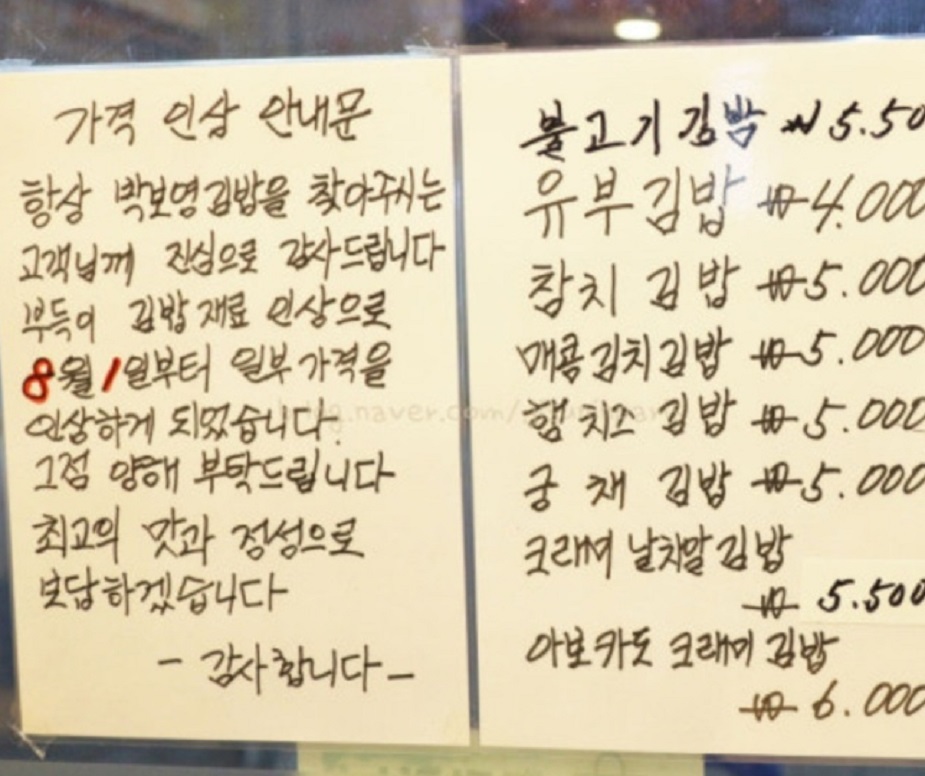 가격 인상 안내문
항상 박보영김밥을 찾아주시는
고객님께 진심으로 감사드립니다
부득이 김밥재료 인상으로
8월 1일부터 일부가격을
인상하게 되었습니다.
그점 양해 부탁드립니다
최고의 맛과 정성으로
보답하겠습니다
- 감사합니다 -
불고기김밥 ₩5.50
유부김밥 ₩4.000
참치 김밥 ₩5.000
매콤김치김밥 ₩5.000
햄치즈 김밥 ₩5.000
궁채 김밥 ₩5.000
크래미 날치알김밥
₩ 5.500
아보카도 크래미 김밥
₩ 6.000
blog.naver.com/